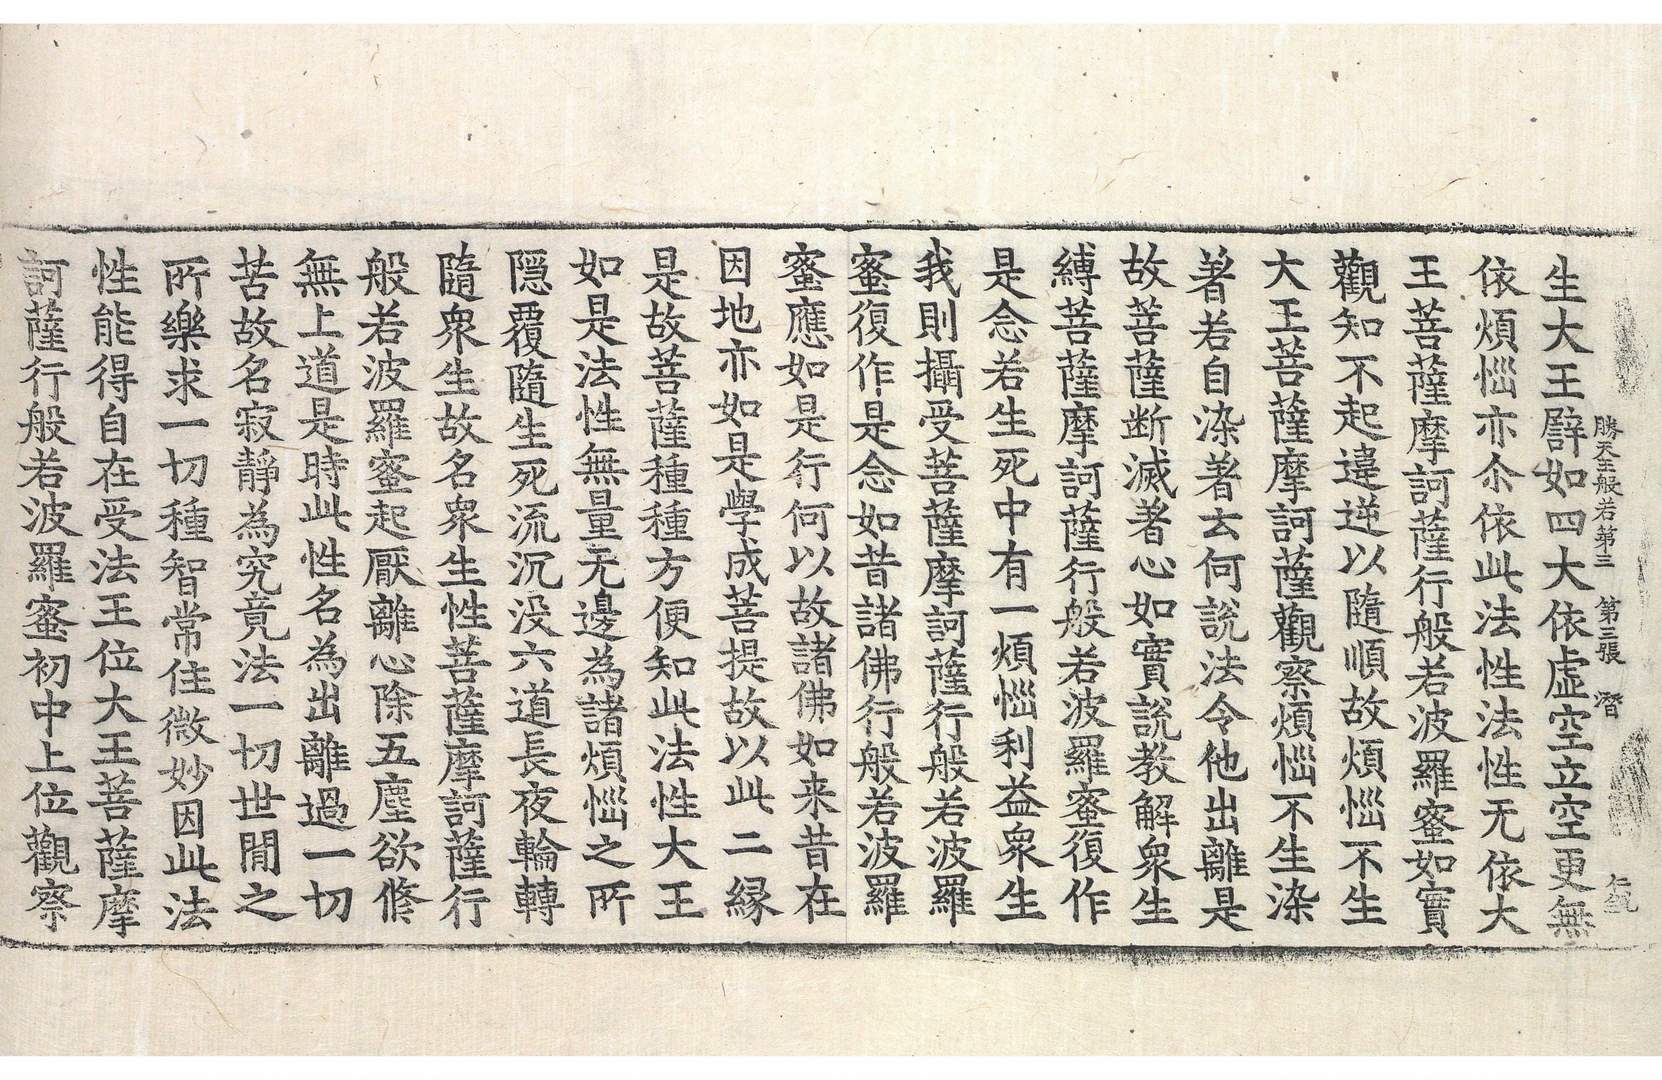 勝天王般若第三 第三張 潛
生大王譬如四大依虛空立空更無
依煩惱亦尒依此法性法性无依大
王菩薩摩訶薩行般若波羅蜜如實
觀知不起違逆以隨順故煩惱不生
大王菩薩摩訶薩觀察煩惱不生染
著若自染著云何說法令他出離是
故菩薩断滅著心如實說教解衆生
縛菩薩摩訶薩行般若波羅蜜復作
是念若生死中有一煩惱利益衆生
我則攝受菩薩摩訶薩行般若波羅
蜜復作是念如昔諸佛行般若波羅
蜜應如是行何以故諸佛如来昔在
因地亦如是學成菩提故以此二縁
是故菩薩種種方便知此法性大王
如是法性無量无邊為諸煩惱之所
隱覆隨生死流沉没六道長夜輪轉
隨衆生故名衆生性菩薩摩訶薩行
般若波羅蜜起厭離心除五塵欲脩
無上道是時此性名為出離過一切
苦故名寂靜為究竟法一切世閒之
所樂求一切種智常住微妙因此法
性能得自在受法王位大王菩薩摩
訶薩行般若波羅蜜初中上位觀察